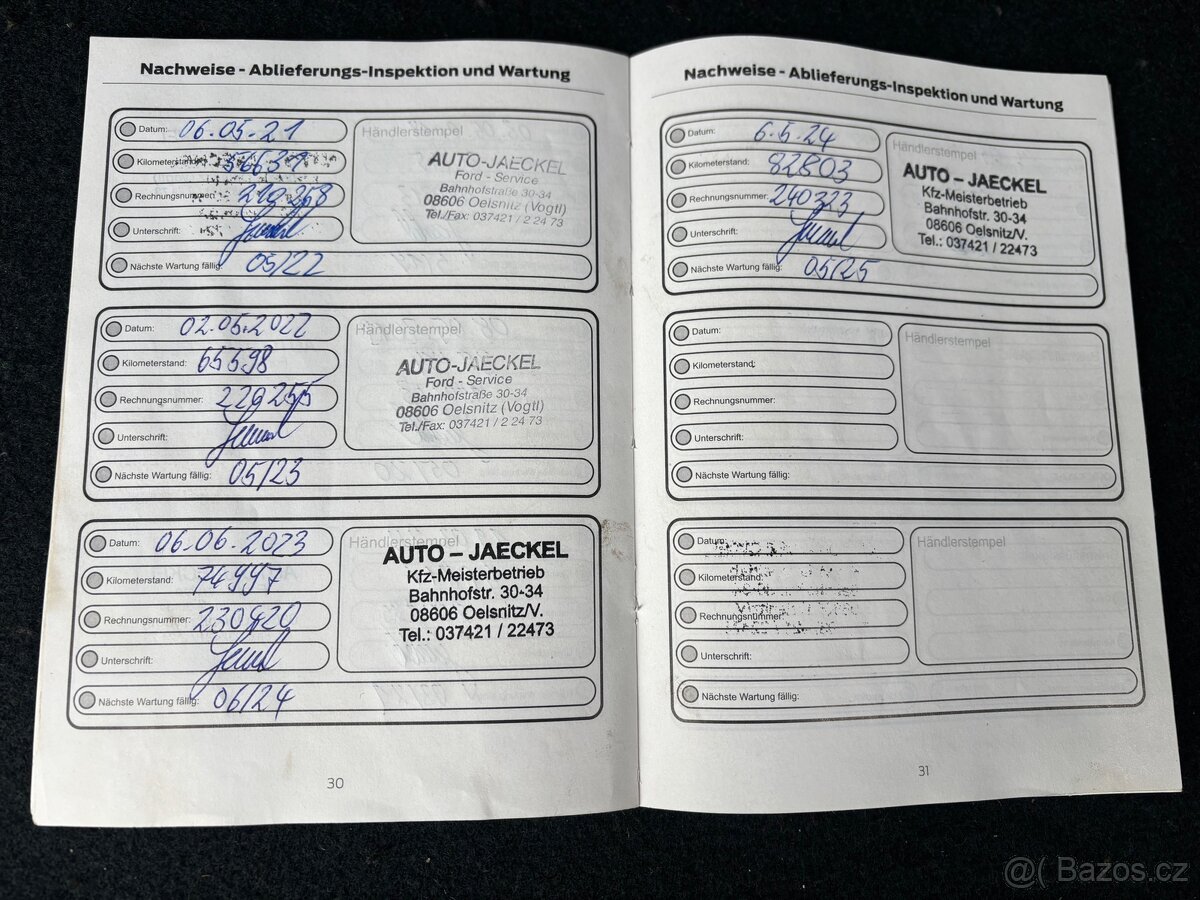 Nachweise - Ablieferungs-Inspektion und Wartung
Datum: 06.05.21
Kilometerstand: 56631
Rechnungsnummer: 219258
Unterschrift:
Nächste Wartung fällig: 05/22
Händlerstempel
AUTO-JAECKEL
Ford - Service
Bahnhofstraße 30-34
08606 Oelsnitz (Vogtl)
Tel./Fax: 037421 / 2 24 73
Datum: 02.05.2022
Kilometerstand: 65598
Rechnungsnummer: 229255
Unterschrift:
Nächste Wartung fällig: 05/23
Händlerstempel
AUTO-JAECKEL
Ford - Service
Bahnhofstraße 30-34
08606 Oelsnitz (Vogtl)
Tel./Fax: 037421 / 2 24 73
Datum: 06.06.2023
Kilometerstand: 74997
Rechnungsnummer: 230420
Unterschrift:
Nächste Wartung fällig: 06/24
Händlerstempel
AUTO – JAECKEL
Kfz-Meisterbetrieb
Bahnhofstr. 30-34
08606 Oelsnitz/V.
Tel.: 037421 / 22473
30
Nachweise - Ablieferungs-Inspektion und Wartung
Datum: 6.5.24
Kilometerstand: 82803
Rechnungsnummer: 240323
Unterschrift:
Nächste Wartung fällig: 05/25
Händlerstempel
AUTO – JAECKEL
Kfz-Meisterbetrieb
Bahnhofstr. 30-34
08606 Oelsnitz/V.
Tel.: 037421 / 22473
Datum:
Kilometerstand:
Rechnungsnummer:
Unterschrift:
Nächste Wartung fällig:
Händlerstempel
Datum:
Kilometerstand:
Rechnungsnummer:
Unterschrift:
Nächste Wartung fällig:
Händlerstempel
31
@( Bazos.cz